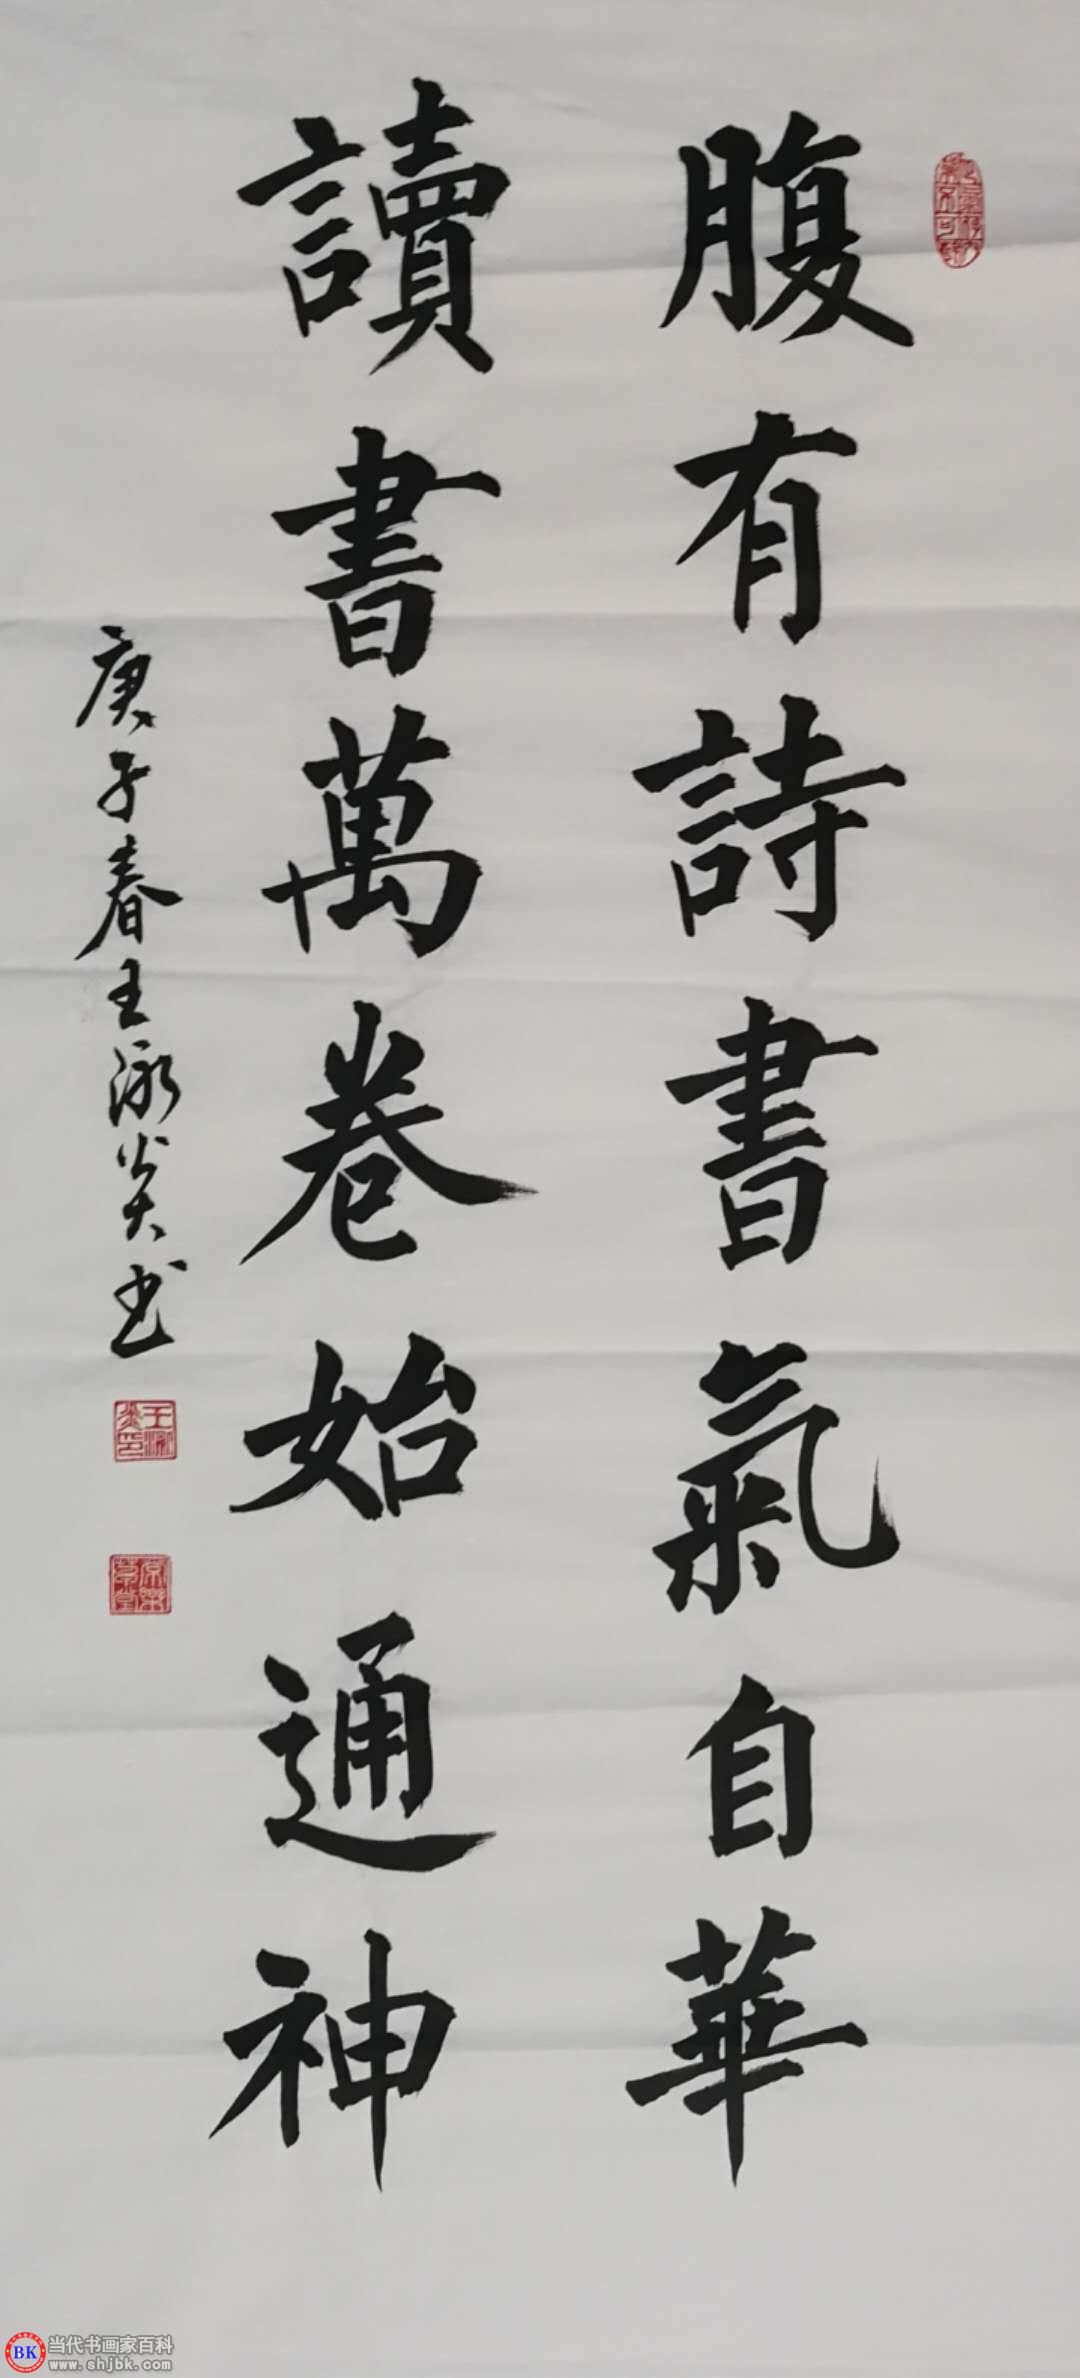 腹有詩書氣自華
讀書萬卷始通神
庚子春王泳炎书
当代书画家百科
BK
www.shjbk.com